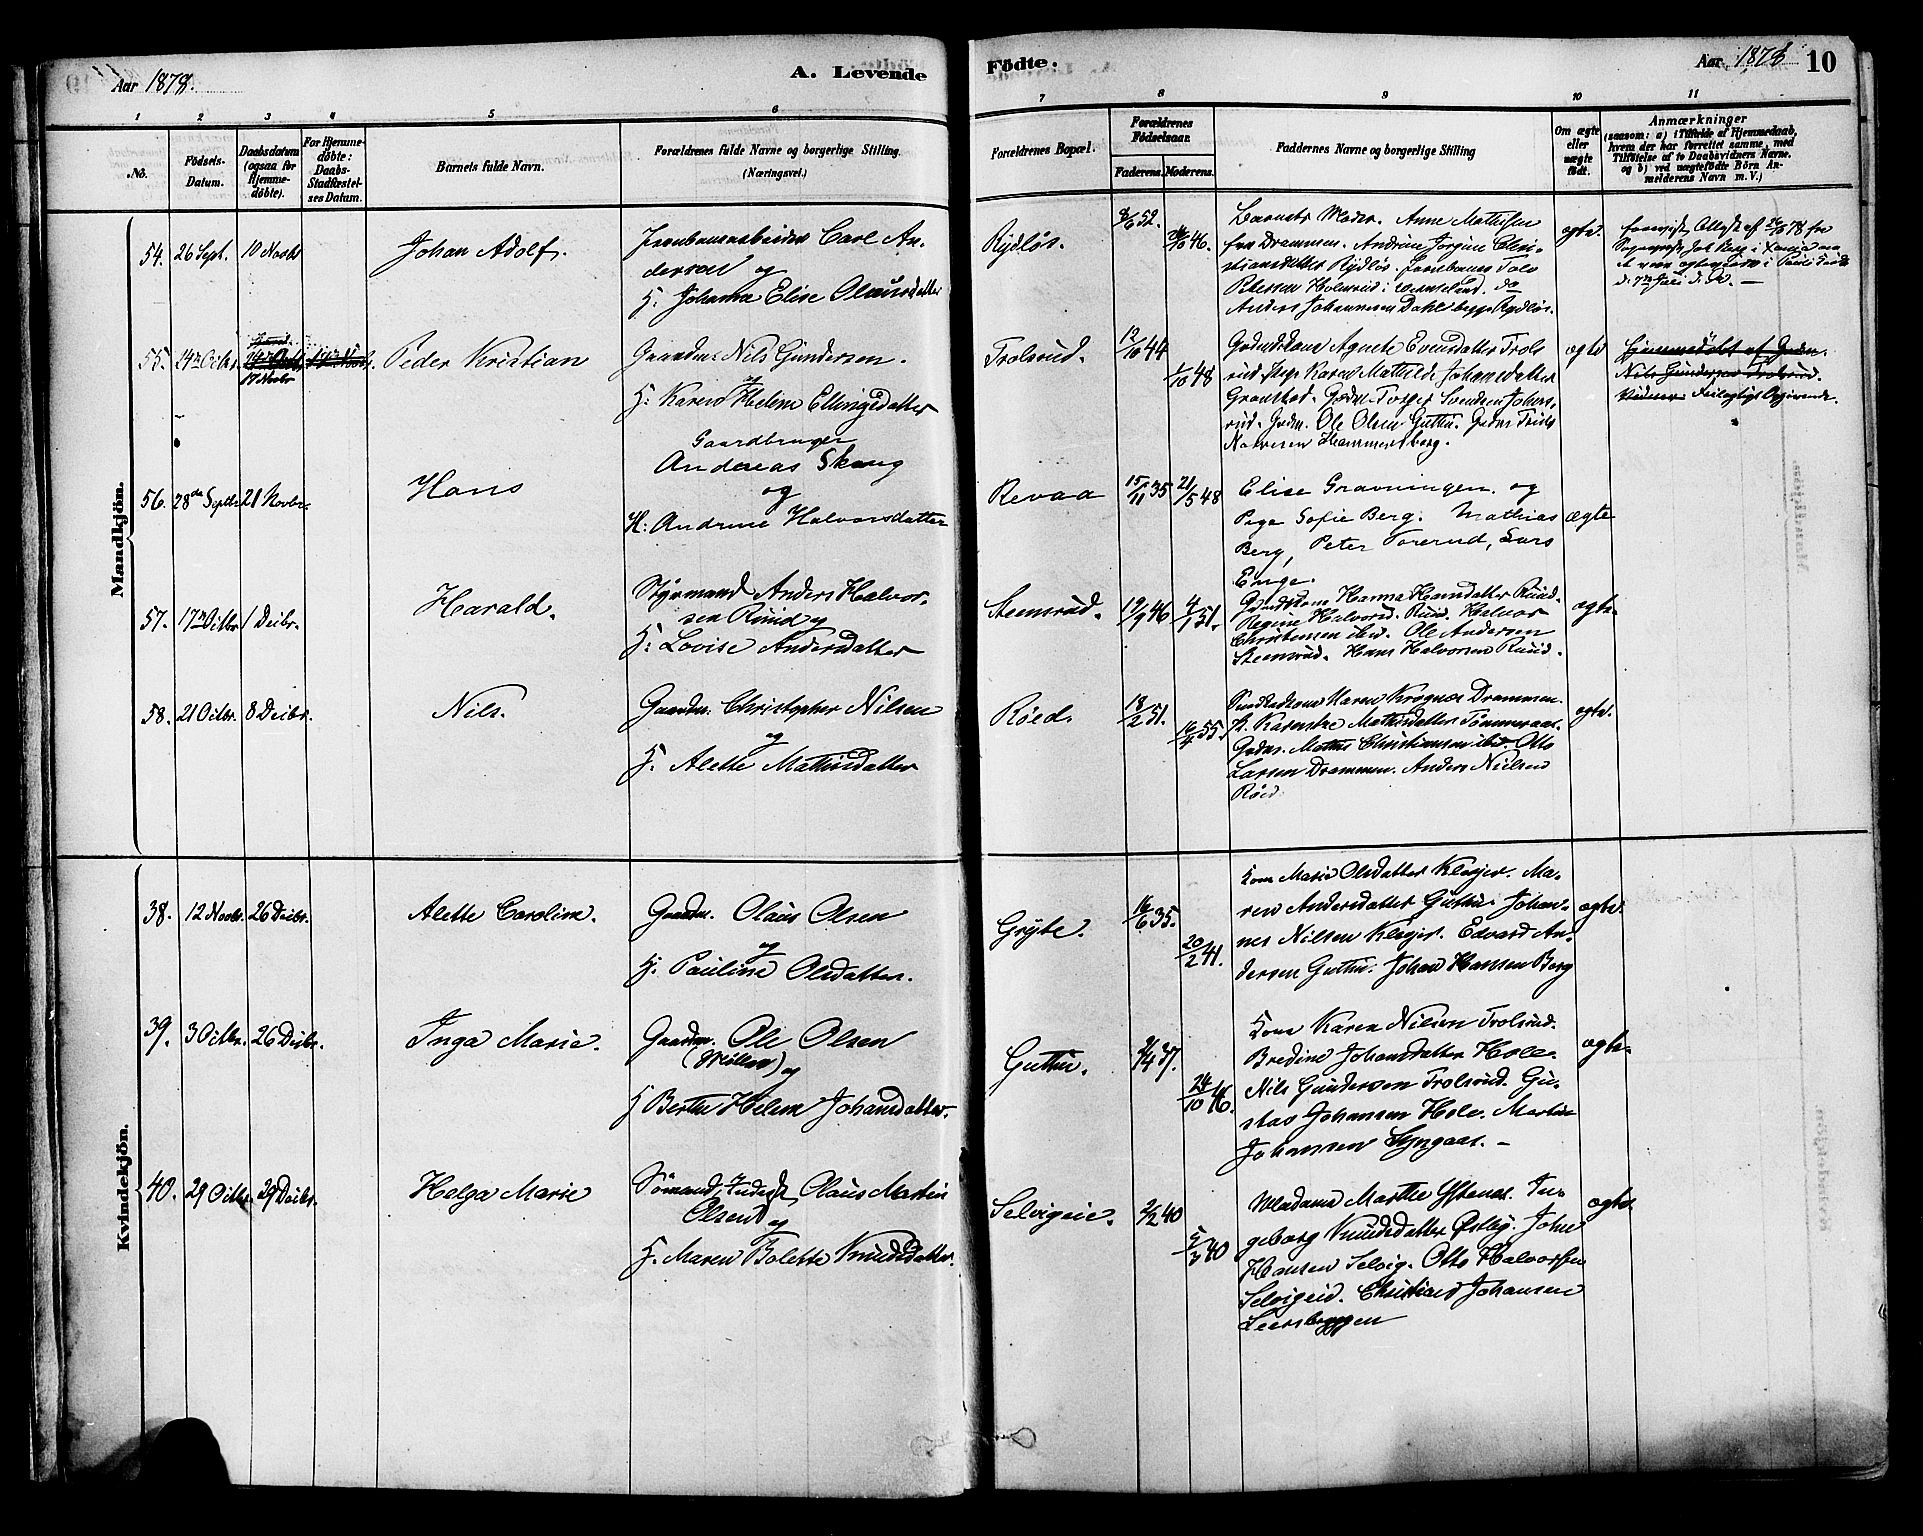 Aar 1878.
A. Levende
Födte.
Aar 1878
10
1 2 3 4 5 6 7 8 9 10 11
No.
Födsels-
Datum.
Daabsdatum
(ogsaa for
Hjemme-
döbte).
For Hjemme-
döbte:
Daabs-
Stadfæstel-
ses Datum.
Barnets fulde Navn.
Forældrenes fulde Navne og borgerlige Stilling.
(Næringsvei.)
Forældrenes Bopæl.
Forældrenes
Födselsaar.
Faderens. Moderens.
Faddernes Navne og borgerlige Stilling
Om ægte
eller
uægte
födt.
Anmærkninger
(saasom: a) i Tilfælde af Hjemmedaab,
hvem der har forrettet samme, med
Tilföielse af to Daabsvidners Navne.
og b) ved uægtefödte Börn An-
melderens Navn m. V.)
Mandkjön.
54. 26 Sept. 10 Novbr
Johan Adolf.
Jernbanearbeider Carl An-
derson og
H: Johanna Elise Olausdatter
Rydløs.
8/6 52.
46.
Barnets Moder. Anne Mathisen
fra Drammen. Andrine Jørgine Chri-
stiansdatter Rydløs.
Anders Johannesen Dahl
ægte.
55. 14de Octbr. 17 Novbr
Peder Kristian
Gaardm. Nils Gundersen.
og
H: Karen Helene Ellingsdatter
Trolsrud.
12/10 44
1/10 48
Gaardm.kone Agnete Evensdatter Trols
rud. Pige Karen Mathilde Johansdatter
Granstad. Gaardm. Torger Svendsen Johns-
rud. Gaardm. Ole Olsen Guttu. Gaardm.
Hammersberg.
ægte
Hjemmedøbt af Gaardm.
Nils Gundersen Trolsrud.
Feilagtigt Opgivende.
56. 28de Septbr 21 Novbr.
Hans
Gaardbruger
Andreas Skaug
og
H: Andrine Halvorsdatter
Revaa
15/11 35
21/5 48
Elise Gravningen. og
Pige Sofie Berg. Mathias
Berg, Peter Torerud, Lars
Enge.
ægte
57. 17de Octbr. 1 Decbr.
Harald.
Styrmand Anders Halvor-
sen Ruud og
H: Lovise Andersdatter
Steensrud.
19/9 46
4/1 51.
Gaardm.kone Hanna Hansdatter Ruud.
Regine Halvorsd. Ruud. Halvor
Christensen ibid. Ole Andersen
Steensrud. Hans Halvorsen Ruud.
ægte.
58. 21 Octbr. 8 Decbr.
Nils.
Gaardm. Christopher Nilsen
og
H. Alette Mathisdatter
Röed.
18/2 51.
16/4 55.
Karen Krognæs Drammen.
P. Karenstine Mathisdatter Tømmeraas.
Gaardm. Mathis Christiansen ibid. Otto
Larsen Drammen. Anders Nielsen
Röed
ægte.
Kvindekjön.
38. 12 Novbr. 26 Decbr.
Alette Caroline.
Gaardm. Olaus Olsen
og
H. Pauline Olsdatter.
Gryte.
16/6 35.
20/2 41.
Kone Marie Olsdatter Klegjer. Ma-
ren Andersdatter Guttu. Johan-
nes Nilsen Klegjer. Edvard An-
dersen Guttu. Johan Hansen Berg
ægte.
39. 3 Octbr. 26 Decbr.
Inga Marie.
Gaardm. Ole Olsen
(Møller) og
H Berthe Helene Johansdatter.
Guttu.
37.
24/10 46.
Kone Karen Nilsen Trolsrud.
Bredine Johansdatter Hole.
Nils Gundersen Trolsrud. Gu-
stav Johansen Hole. Martin
Johansen Lyngaas. -
ægte.
40. 29 Octbr. 29 Decbr.
Helga Marie
Sömand, Inderst Olaus Martin
Olsen og
H. Maren Bolette Knudsdatter.
Selvigeie.
2/2 40
5/3 40
Madame Marthe Ystenæs. In-
geborg Knudsdatter Østby. John
Hansen Selvig. Otto Halvorsen
Selvigeie. Christian Johansen
Leersbryggen
ægte.